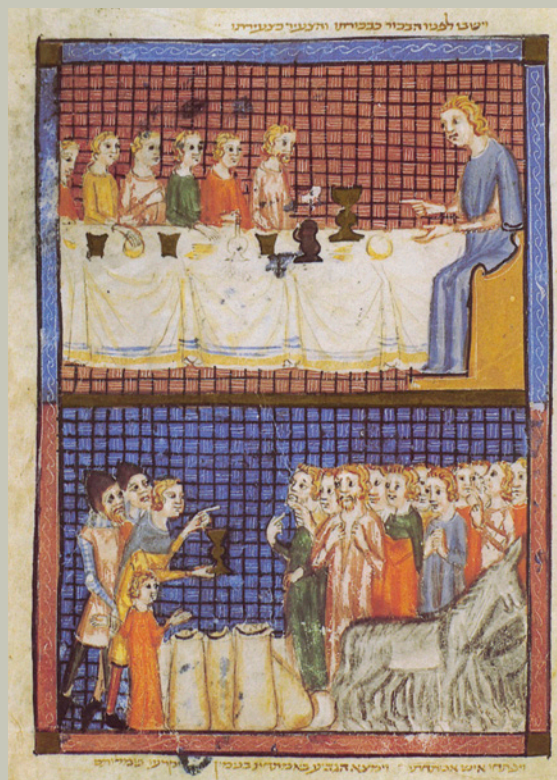 וישבו לפניו הבכור כבכורתו והצעיר כצעירתו
ויפתחו איש אמתחתו וימצא הגביע באמתחת בנימין ויקרעו שמלותם